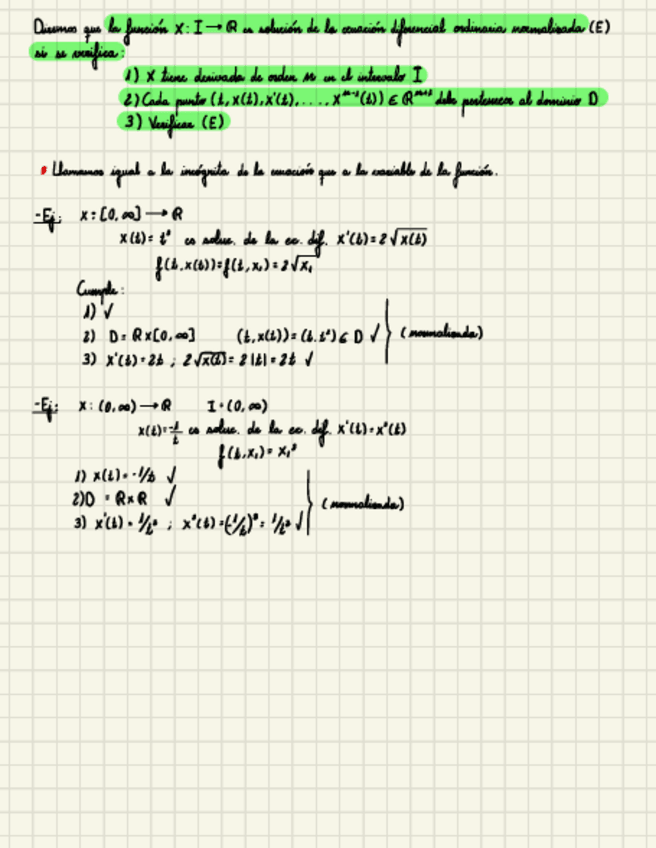 Diremos que la función x: I → R es solución de la ecuación diferencial ordinaria normalizada (E)
si se verifica:
1) x tiene derivada de orden n en el intervalo I
2) Cada punto (t, x(t), x'(t), ..., xⁿ⁻¹(t)) ∈ Rⁿ⁺¹ debe pertenecer al dominio D
3) Verificar (E)
• Llamamos igual a la incógnita de la ecuación que a la variable de la función.
- Ej: x: [0, ∞] → R
x(t) = t² es soluc. de la ec. dif. x'(t) = 2√x(t)
f(t, x(t)) = f(t, x₁) = 2√x₁
Cumple:
1) ✓
2) D = R x [0, ∞] (t, x(t)) = (t, t²) ∈ D ✓ (normalizada)
3) x'(t) = 2t ; 2√x(t) = 2|t| = 2t ✓
- Ej: x: (0, ∞) → R I = (0, ∞)
x(t) = -1/t es soluc. de la ec. dif. x'(t) = x²(t)
f(t, x₁) = x₁²
1) x(t) = -1/t ✓
2) D = R x R ✓ (normalizada)
3) x'(t) = 1/t² ; x²(t) = (-1/t)² = 1/t² ✓